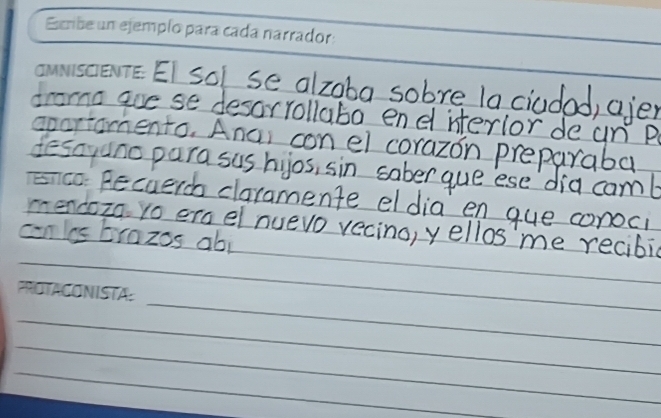 Escribe un ejemplo para cada narrador:
OMNISCIENTE: El sol se alzaba sobre la ciudad, ajen
drama que se desarrollaba en el interior de un p
apartamento. Ana, con el corazón preparaba
desayuno para sus hijos, sin saber que ese día camb
TESTIGO: Recuerdo claramente el dia en que conoci
mendoza. Yo era el nuevo vecino, y ellos me recibie
con los brazos abi
PROTAGONISTA: